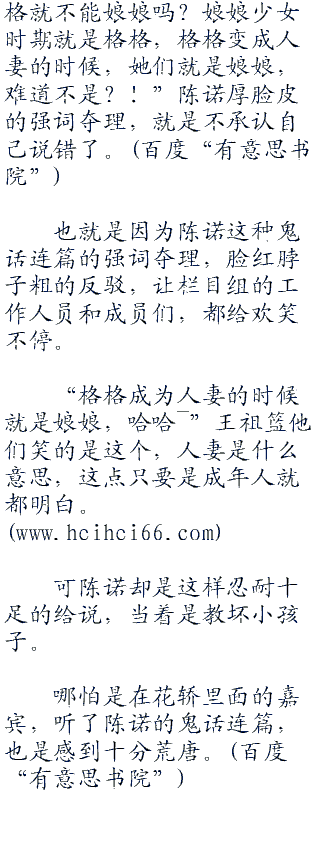 格就不能娘娘吗？娘娘少女
时期就是格格，格格变成人
妻的时候，她们就是娘娘，
难道不是？！”陈诺厚脸皮
的强词夺理，就是不承认自
己说错了。(百度“有意思书
院”)
也就是因为陈诺这种鬼
话连篇的强词夺理，脸红脖
子粗的反驳，让栏目组的工
作人员和成员们，都给欢笑
不停。
“格格成为人妻的时候
就是娘娘，哈哈~”王祖篮他
们笑的是这个，人妻是什么
意思，这点只要是成年人就
都明白。
(www.hcihci66.com)
可陈诺却是这样忍耐十
足的给说，当着是教坏小孩
子。
哪怕是在花轿里面的嘉
宾，听了陈诺的鬼话连篇，
也是感到十分荒唐。(百度
“有意思书院”)